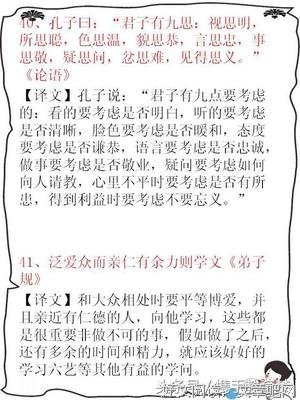 40、孔子曰：“君子有九思：视思明，
所思聪，色思温，貌思恭，言思忠，事
思敬，疑思问，忿思难，见得思义。”
《论语》
【译文】孔子说：“君子有九点要考虑
的：看的要考虑是否明白，听的要考虑
是否清晰，脸色要考虑是否暖和，态度
要考虑是否谦恭，语言要考虑是否忠诚，
做事要考虑是否敬业，疑问要考虑如何
向人请教，心里不平时要考虑是否有所
患，得到利益时要考虑不要忘义。”
41、泛爱众而亲仁有余力则学文《弟子
规》
【译文】和大众相处时要平等博爱，并
且亲近有仁德的人，向他学习，这些都
是很重要非做不可的事，假如做了之后，
还有多余的时间和精力，就应该好好的
学习六艺等其他有益的学问。